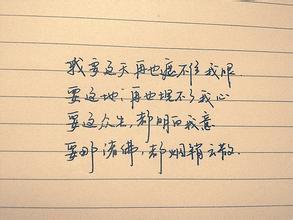 我要这天再也遮不住我眼.
要这地,再也埋不了我心
要这众生,都明白我意
要那诸佛,都烟消云散.